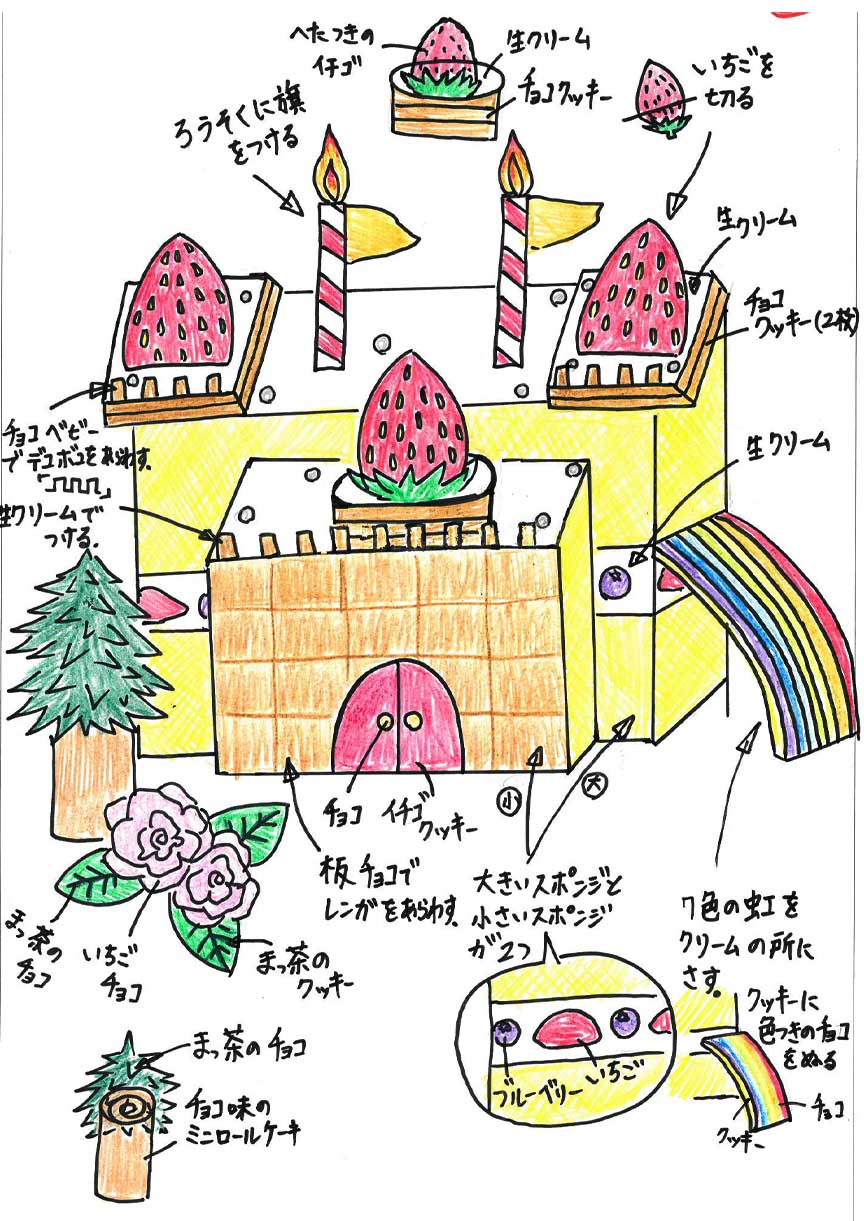 へたつきの
イチゴ
生クリーム
チョコクッキー
いちごを
切る
ろうそくに旗
をつける
生クリーム
チョコ
クッキー(2枚)
チョコベビー
でデコボコをあらわす。
生クリームで
つける。
生クリーム
チョコ
イチゴ
クッキー
小
大
板チョコで
レンガをあらわす。
大きいスポンジと
小さいスポンジ
が2つ
7色の虹を
クリームの所に
さす。
まっ茶の
チョコ
いちご
チョコ
まっ茶の
クッキー
クッキーに
色つきのチョコ
をぬる
ブルーベリー
いちご
クッキー
チョコ
まっ茶のチョコ
チョコ味の
ミニロールケーキ